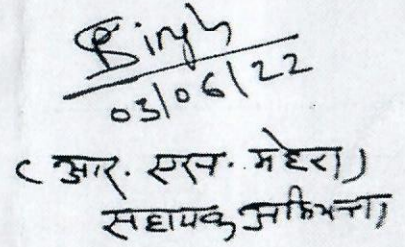 Singh
03/06/22
( आर. एस. मेहरा )
सहायक अभियन्ता